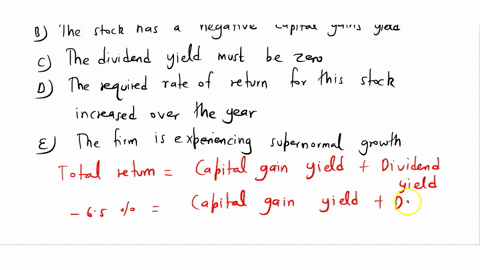 B) The stock has a negative capital gains yield
C) The dividend yield must be zero
D) The required rate of return for this stock
increased over the year
E) The firm is experiencing supernormal growth
Total return = Capital gain yield + Dividend
yield
- 6.5 % = Capital gain yield + D.